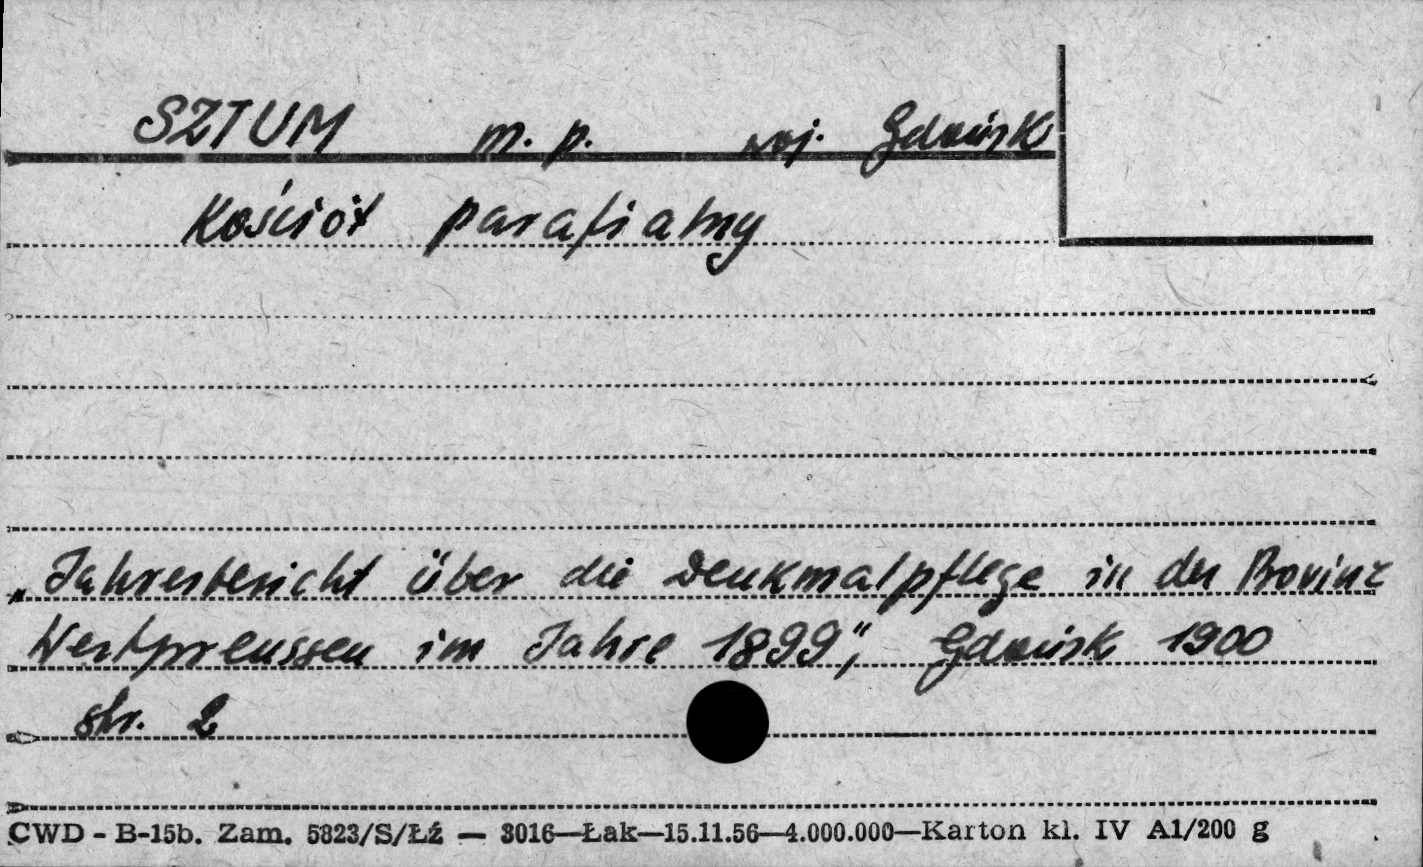 SZTUM m. p. woj. Gdańsk
Kościół parafialny
„Jahresbericht über die Denkmalpflege in der Provinz
Westpreussen im Jahre 1899", Gdańsk 1900
str. 2
CWD - B-15b. Zam. 5823/S/Łź — 3016—Łak—15.11.56—4.000.000—Karton kl. IV A1/200 g